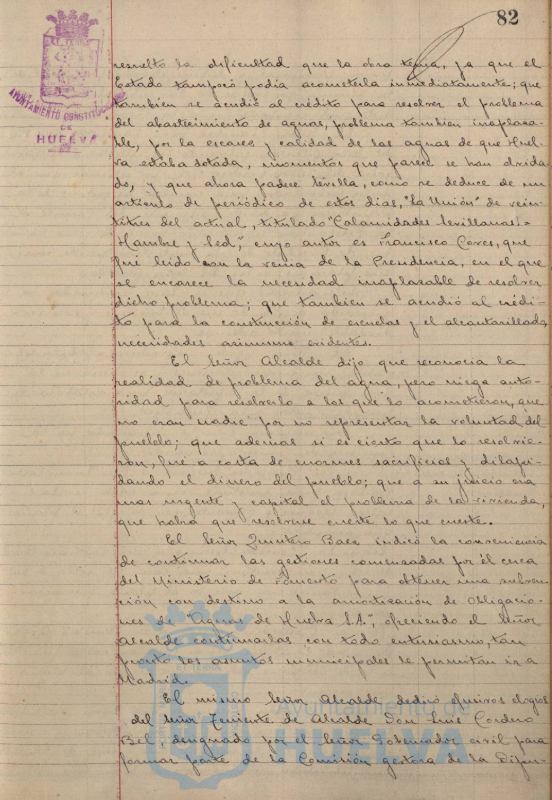 82
AYUNTAMIENTO CONSTITUCIONAL
DE
HUELVA
resuelto la dificultad que la obra tenia, ya que el
Estado tampoco podia acometerla inmediatamente; que
tambien se acudió al crédito para resolver el problema
del abastecimiento de aguas, problema tambien inaplaza-
ble, por la escasez y calidad de las aguas de que Huel-
va estaba dotada, momentos que parece se han olvida-
do, y que ahora padece Sevilla, como se deduce de un
articulo de periódico de estos dias, "La Unión" de vein-
titres del actual, titulado "Calamidades Sevillanas.-
Hambre y Sed", cuyo autor es Francisco Coves, que
fué leido con la venia de la Presidencia, en el que
se encarece la necesidad inaplazable de resolver
dicho problema; que tambien se acudió al crédi-
to para la construcción de escuelas y el alcantarillado,
necesidades asimismo evidentes.
El Señor Alcalde dijo que reconocia la
realidad de problema del agua, pero niega auto-
ridad para resolverlo a los que lo acometieron, que
no eran nadie por no representar la voluntad del
pueblo; que ademas si es cierto que lo resolvie-
ron, fué a costa de enormes sacrificios y dilapi-
dando el dinero del pueblo; que a su juicio era
mas urgente y capital el problema de la vivienda,
que habia que resolverse cueste lo que cueste.
El Señor Quintero Baez indicó la conveniencia
de continuar las gestiones comenzadas por él cerca
del Ministerio de Fomento para obtener una subven-
ción con destino a la amortización de Obligacio-
nes de "Aguas de Huelva S.A.", ofreciendo el Señor
Alcalde continuarlas con todo entusiasmo, tan
pronto los asuntos municipales le permitan ir a
Madrid.
El mismo Señor Alcalde dedicó efusivos elogios
del Señor Teniente de Alcalde Don Luis Cordero
Bel, designado por el Señor Gobernador civil para
formar parte de la Comisión gestora de la Dipu-
Ayuntamiento de
HUELVA